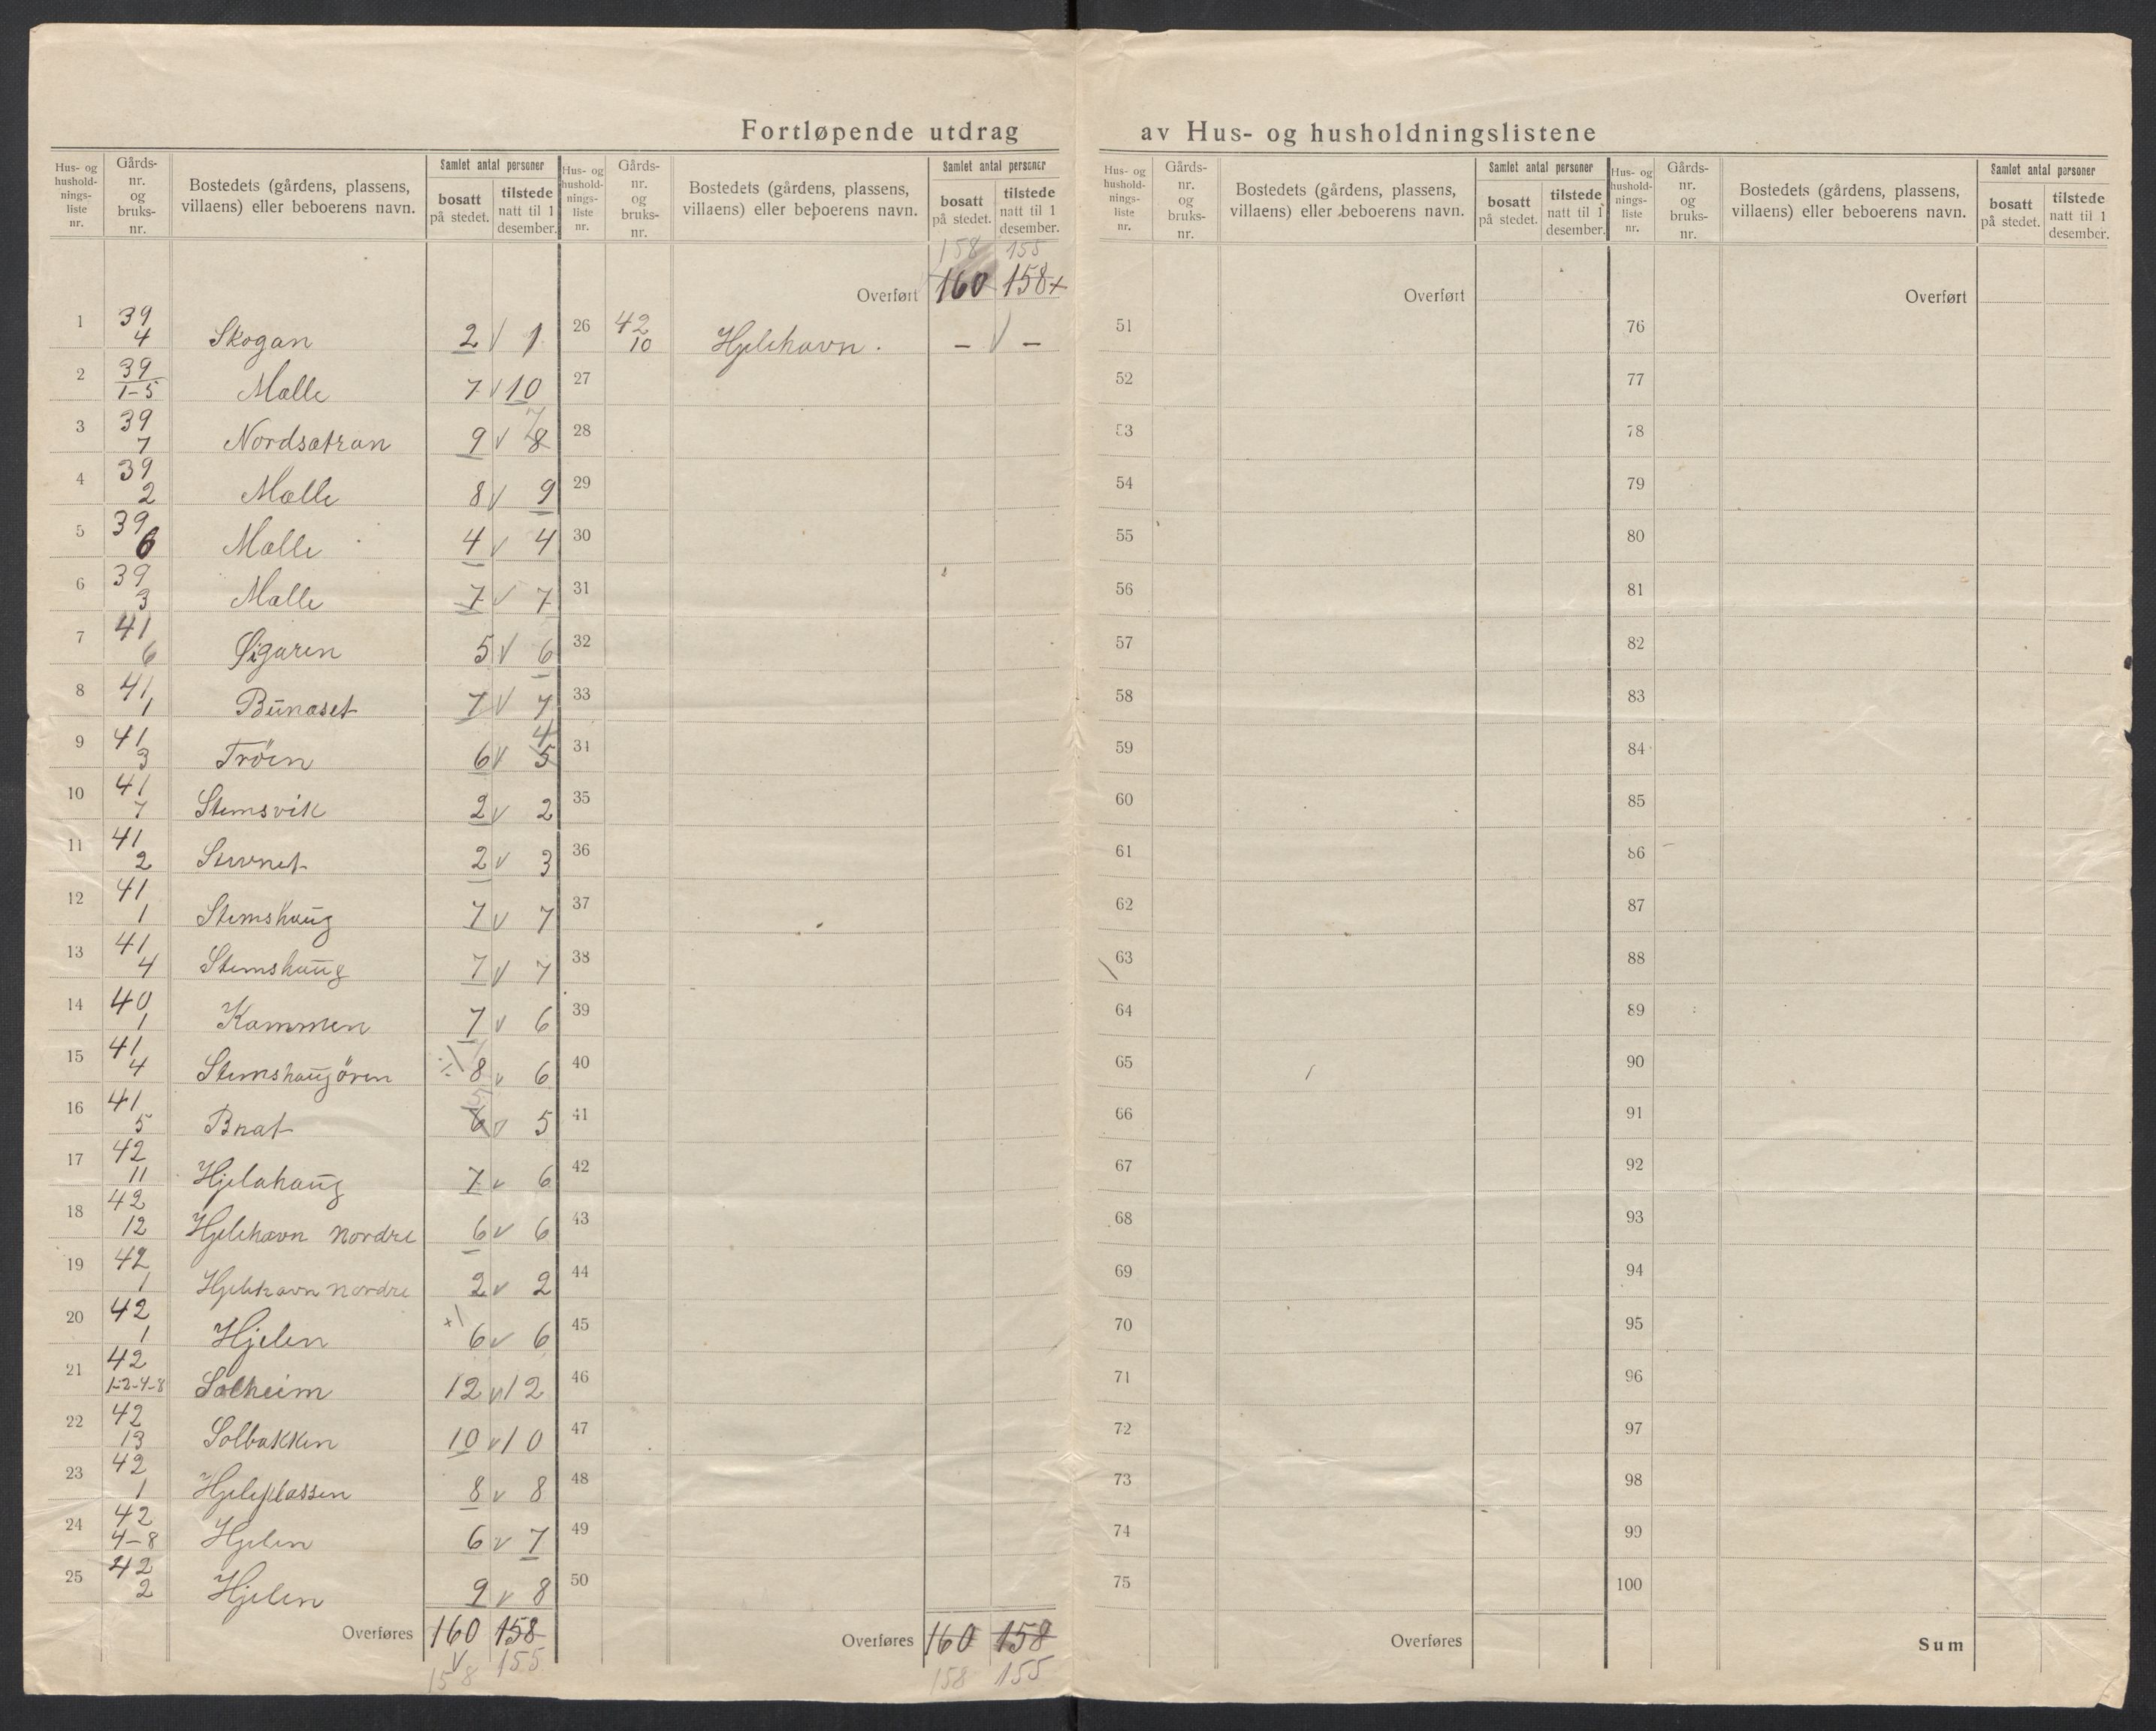 Fortløpende utdrag av Hus- og husholdningslistene
Hus- og hushold-nings-liste nr. Gårds-nr. og bruks-nr. Bostedets (gårdens, plassens, villaens) eller beboerens navn. Samlet antal personer bosatt på stedet. tilstede natt til 1 desember.
1 39 4 Skogan 2 v 1
2 39 1-5 Mælle 7 v 10
3 39 7 Nordsætran 9 v 8 7
4 39 2 Mælle 8 v 9
5 39 6 Mælle 4 v 4
6 39 3 Mælle 7 v 7
7 41 6 Øigaren 5 v 6
8 41 1 Bunæset 7 v 7
9 41 3 Tröen 6 v 5 4
10 41 7 Stemsvik 2 v 2
11 41 2 2 v 3
12 41 1 Stemshaug 7 v 7
13 41 4 Stemshaug 7 v 7
14 40 1 Kammen 7 v 6
15 41 4 Stemshaugören 8 v 6
16 41 5 6 5 v 5
17 42 11 Hjelahaug 7 v 6
18 42 12 Hjelehavn Nordre 6 v 6
19 42 1 Hjelehavn Nordre 2 v 2
20 42 1 Hjelen +1 6 v 6
21 42 1-2-4-8 Solheim 12 v 12
22 42 13 Solbakken 10 v 10
23 42 1 Hjeleplassen 8 v 8
24 42 4-8 Hjelen 6 v 7
25 42 2 Hjelen 9 v 8
Overføres 160 158
v
158 155
Hus- og hushold-nings-liste nr. Gårds-nr. og bruks-nr. Bostedets (gårdens, plassens, villaens) eller beboerens navn. Samlet antal personer bosatt på stedet. tilstede natt til 1 desember.
158 155
Overført 160 158+
26 42 10 Hjelehavn. – v –
27
28
29
30
31
32
33
34
35
36
37
38
39
40
41
42
43
44
45
46
47
48
49
50
Overføres 160 158
158 155
Hus- og hushold-nings-liste nr. Gårds-nr. og bruks-nr. Bostedets (gårdens, plassens, villaens) eller beboerens navn. Samlet antal personer bosatt på stedet. tilstede natt til 1 desember.
Overført
51
52
53
54
55
56
57
58
59
60
61
62
63
64
65
66
67
68
69
70
71
72
73
74
75
Overføres
Hus- og hushold-nings-liste nr. Gårds-nr. og bruks-nr. Bostedets (gårdens, plassens, villaens) eller beboerens navn. Samlet antal personer bosatt på stedet. tilstede natt til 1 desember.
Overført
76
77
78
79
80
81
82
83
84
85
86
87
88
89
90
91
92
93
94
95
96
97
98
99
100
Sum